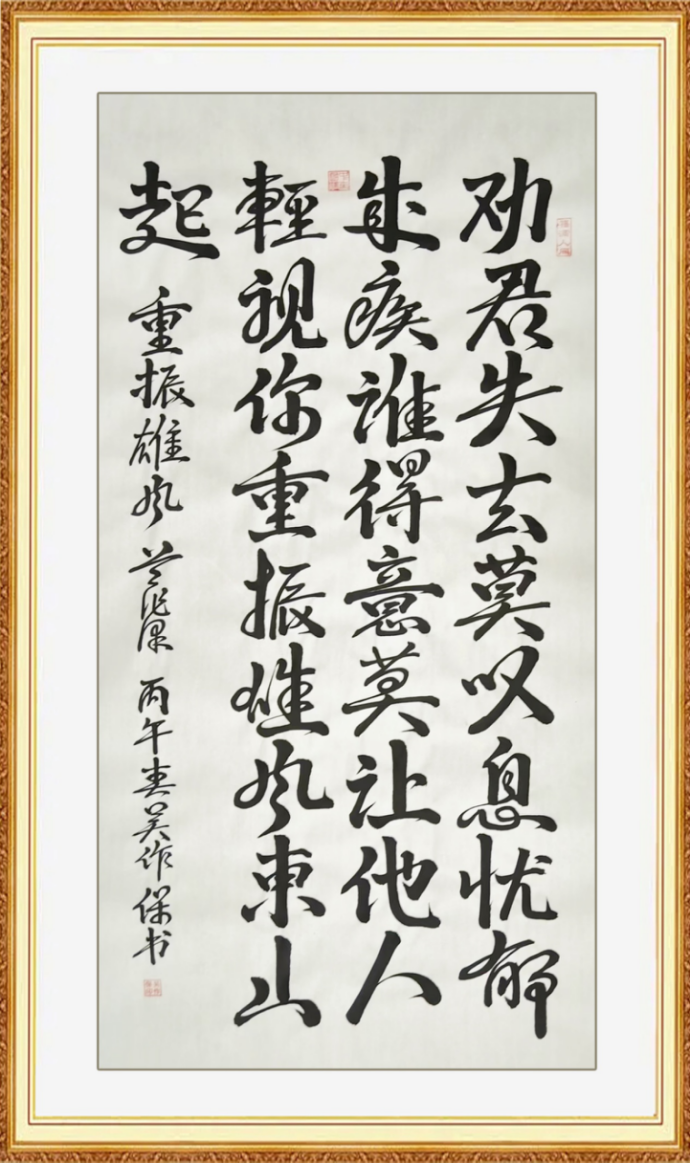 劝君失去莫叹息忧郁
成疾谁得意莫让他人
輕视你重振雄风東山
起 重振雄风 丙午春吴作保书